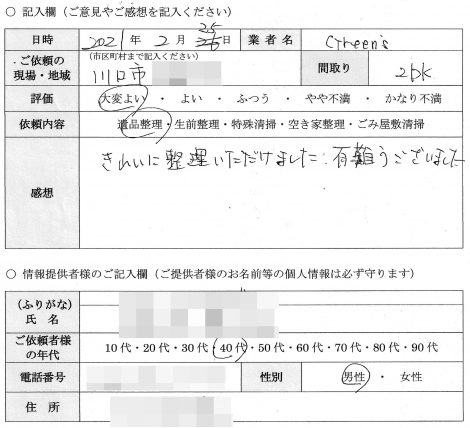 ○ 記入欄（ご意見やご感想を記入ください）
日時 2021年 2月 25日 業者名 Green's
ご依頼の現場・地域 (市区町村まで記入ください) 川口市 間取り 2DK
評価 大変よい ・ よい ・ ふつう ・ やや不満 ・ かなり不満
依頼内容 遺品整理・生前整理・特殊清掃・空き家整理・ごみ屋敷清掃
感想 きれいに整理いただけました。有難うございました
○ 情報提供者様のご記入欄（ご提供者様のお名前等の個人情報は必ず守ります）
(ふりがな)
氏 名
ご依頼者様の年代 10代・20代・30代・40代・50代・60代・70代・80代・90代
電話番号 性別 男性 ・ 女性
住 所